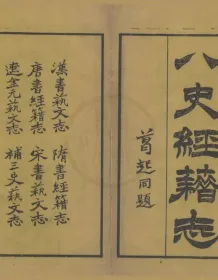 八史經籍志
葛起同題
漢書藝文志 隋書經籍志
唐書經籍志 宋書藝文志
遼金元藝文志 補三史藝文志